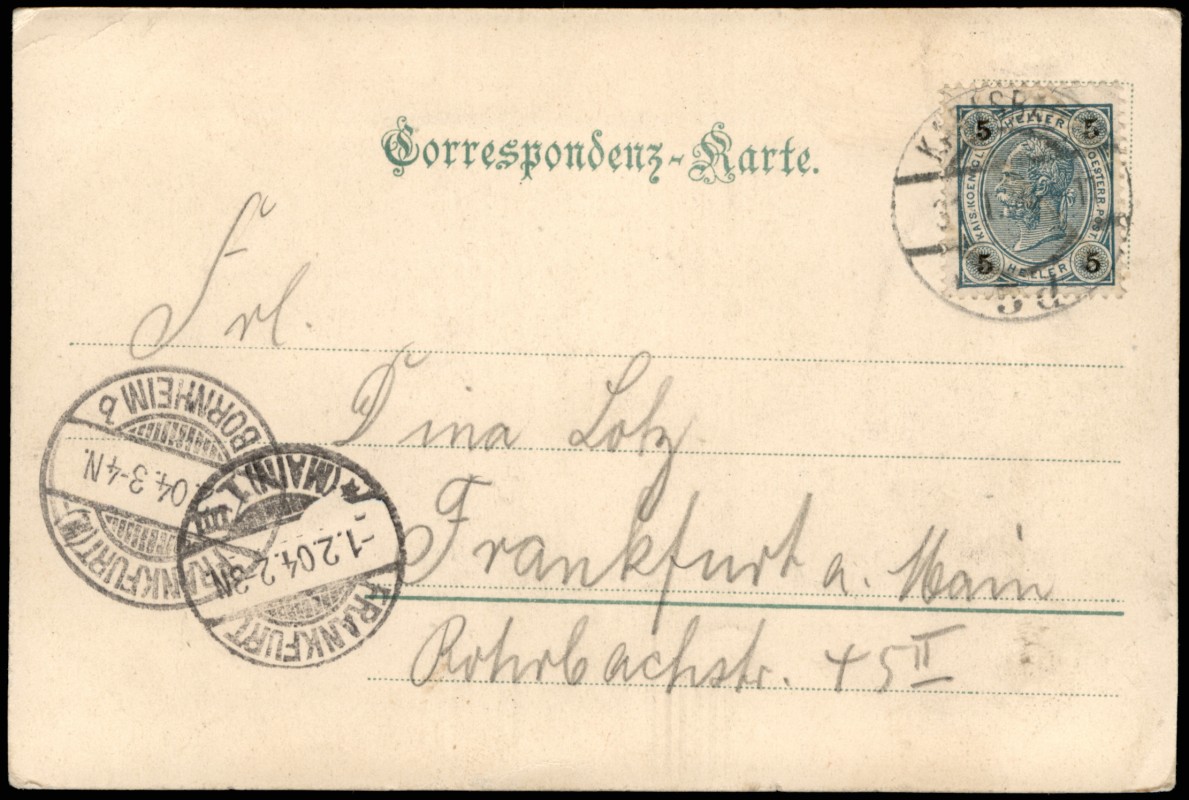 Correspondenz-Karte.
5 HELLER 5
KAIS. KOENIGL. OESTERR. POST.
5 HELLER 5
5 d
Frl.
Dina Lotz
Frankfurt a. Main
Rohrbachstr. 45 II
BORNHEIM b
04. 3-4 N.
FRANKFURT (M.)
(MAIN) 1
-1.2.04. 2-3N
FRANKFURT